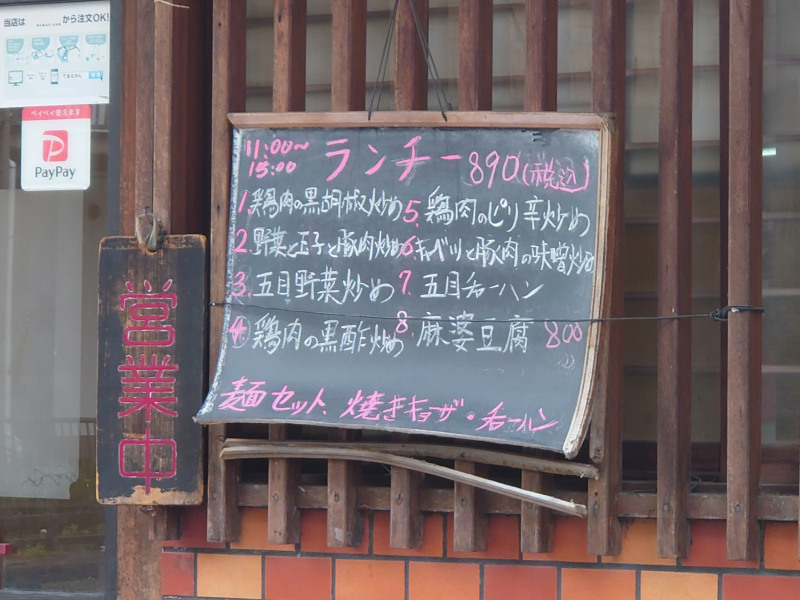 当店は
から注文OK!
ペイペイ使えます
PayPay
営業中
11:00~
15:00
ランチー890(税込)
1.鶏肉の黒胡椒炒め
2.野菜と玉子と豚肉炒め
3.五目野菜炒め
4.鶏肉の黒酢炒め
5.鶏肉のピリ辛炒め
6.キャベツと豚肉の味噌炒め
7.五目チャーハン
8.麻婆豆腐 800
麺セット、焼きギョーザ・チャーハン